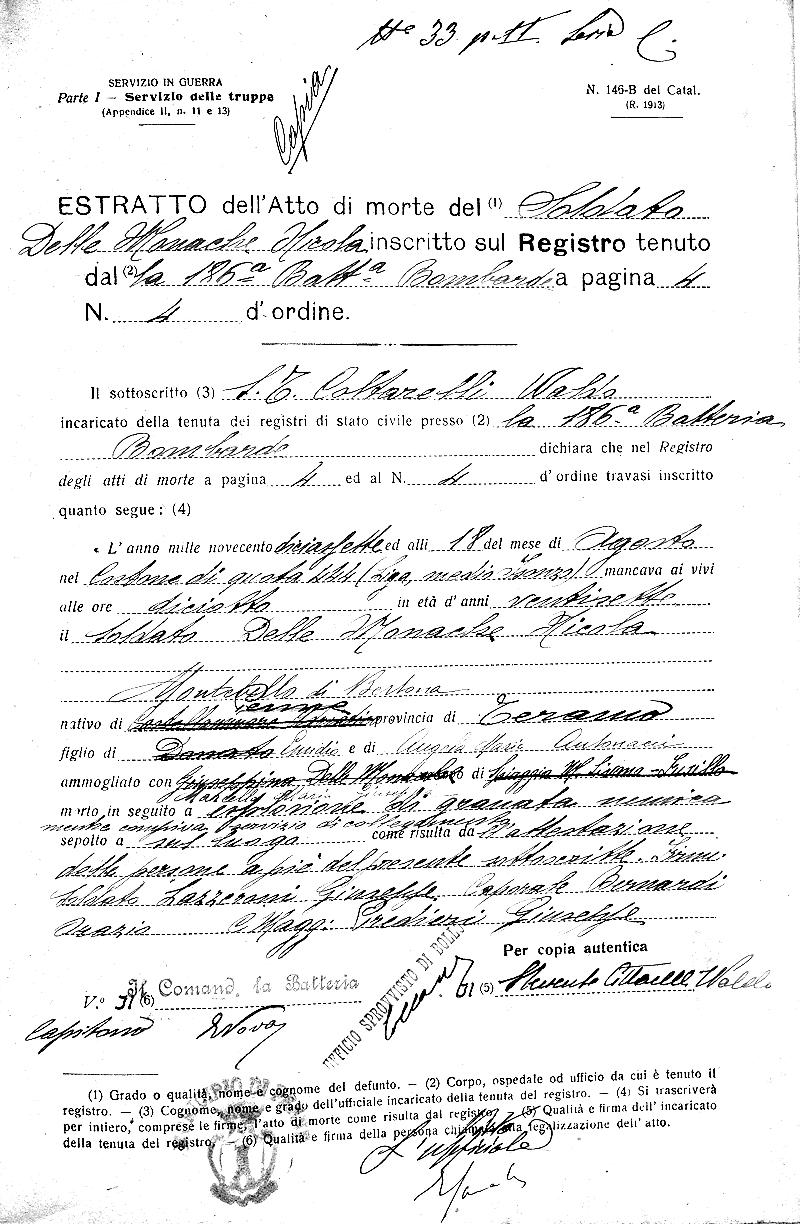 N° 33 p. II. Serie C.
SERVIZIO IN GUERRA
Parte I – Servizio delle truppe
(Appendice II, n. 11 e 13)
Copia
N. 146-B del Catal.
(R. 1913)
ESTRATTO dell'Atto di morte del (1) Soldato
Delle Monache Nicola inscritto sul Registro tenuto
dal (2) la 186ª Battª Bombarde a pagina 4
N. 4 d'ordine.
Il sottoscritto (3) S.T. Cottarelli Waldo
incaricato della tenuta dei registri di stato civile presso (2) la 186ª Batteria
Bombarde dichiara che nel Registro
degli atti di morte a pagina 4 ed al N. 4 d'ordine travasi inscritto
quanto segue: (4)
« L'anno mille novecento diciassette ed alli 18 del mese di Agosto
nel Costone di quota 244 (Liga, medio Isonzo) mancava ai vivi
alle ore diciotto in età d'anni ventisette
il soldato Delle Monache Nicola
Montebello di Bertona
Penne
nativo di provincia di Teramo
figlio di Donato Emidio e di Angela Maria Antonacci
ammogliato con Giuseppina Delle Monache di
Maria
morto in seguito a esplosione di granata nemica
mentre compiva servizio di collegamento
sepolto a sul luogo come risulta da attestazione
delle persone a piè del presente sottoscritte. Firm:
Soldato Lazzeroni Giuseppe Caporale Bernardi
Orazio C. Magg: Predieri Giuseppe
Per copia autentica
Il Comand. la Batteria
V.° (6)
UFFICIO SPROVVISTO DI BOLLO
(5) Waldo
Capitano
(1) Grado o qualità, nome e cognome del defunto. – (2) Corpo, ospedale od ufficio da cui è tenuto il
registro. – (3) Cognome, nome e grado dell'ufficiale incaricato della tenuta del registro. – (4) Si trascriverà
per intiero, comprese le firme, l'atto di morte come risulta dal registro. – (5) Qualità e firma dell'incaricato
della tenuta del registro. – (6) Qualità e firma della persona chiamata alla legalizzazione dell'atto.
L'ufficiale